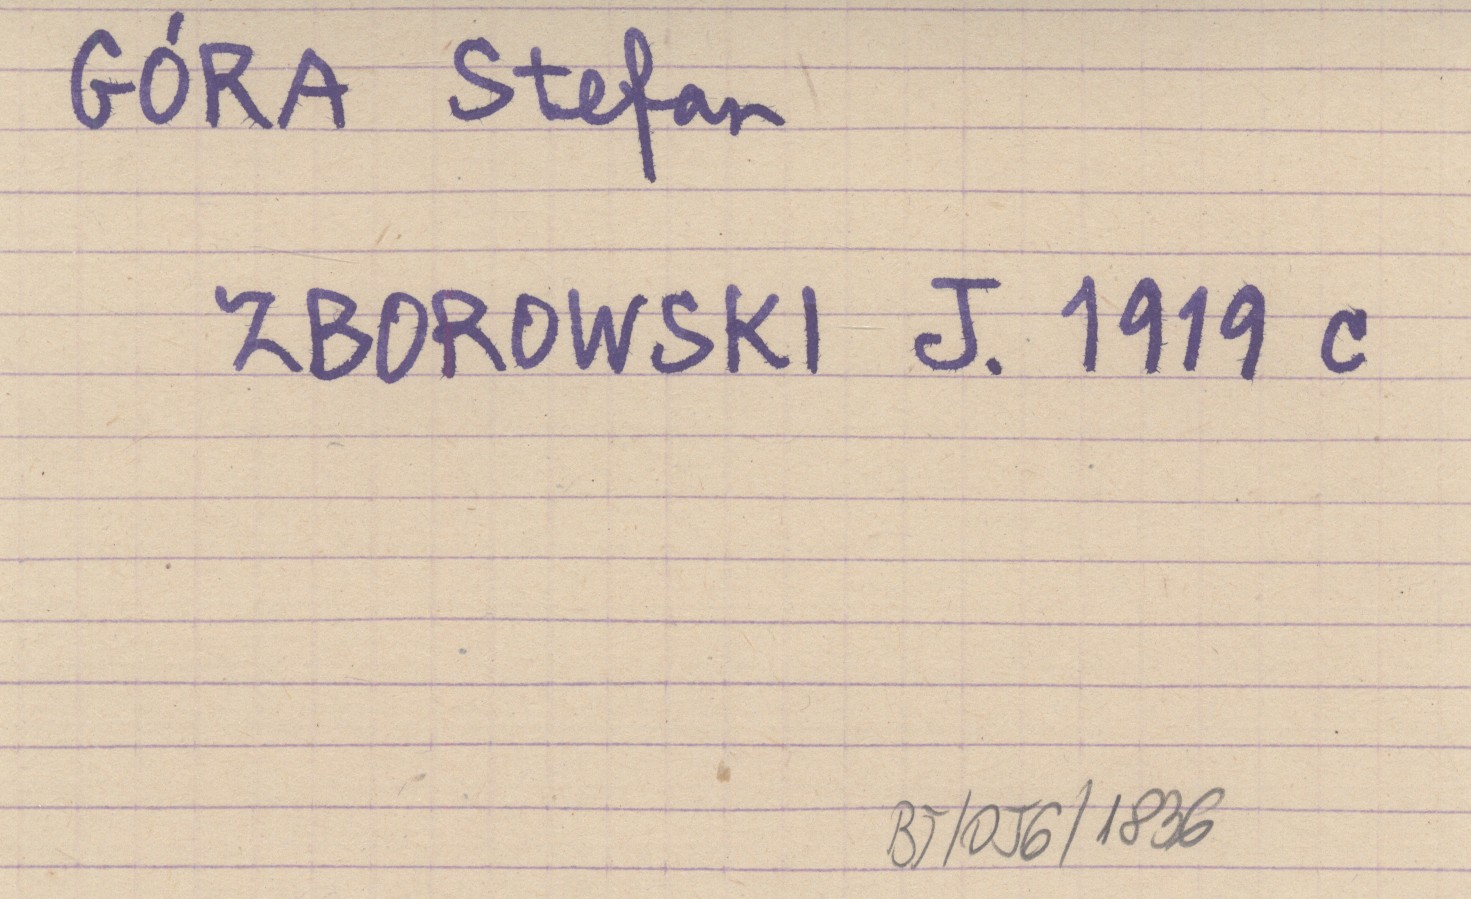 GÓRA Stefan
ZBOROWSKI J. 1919 c
BJ/OJG/1836